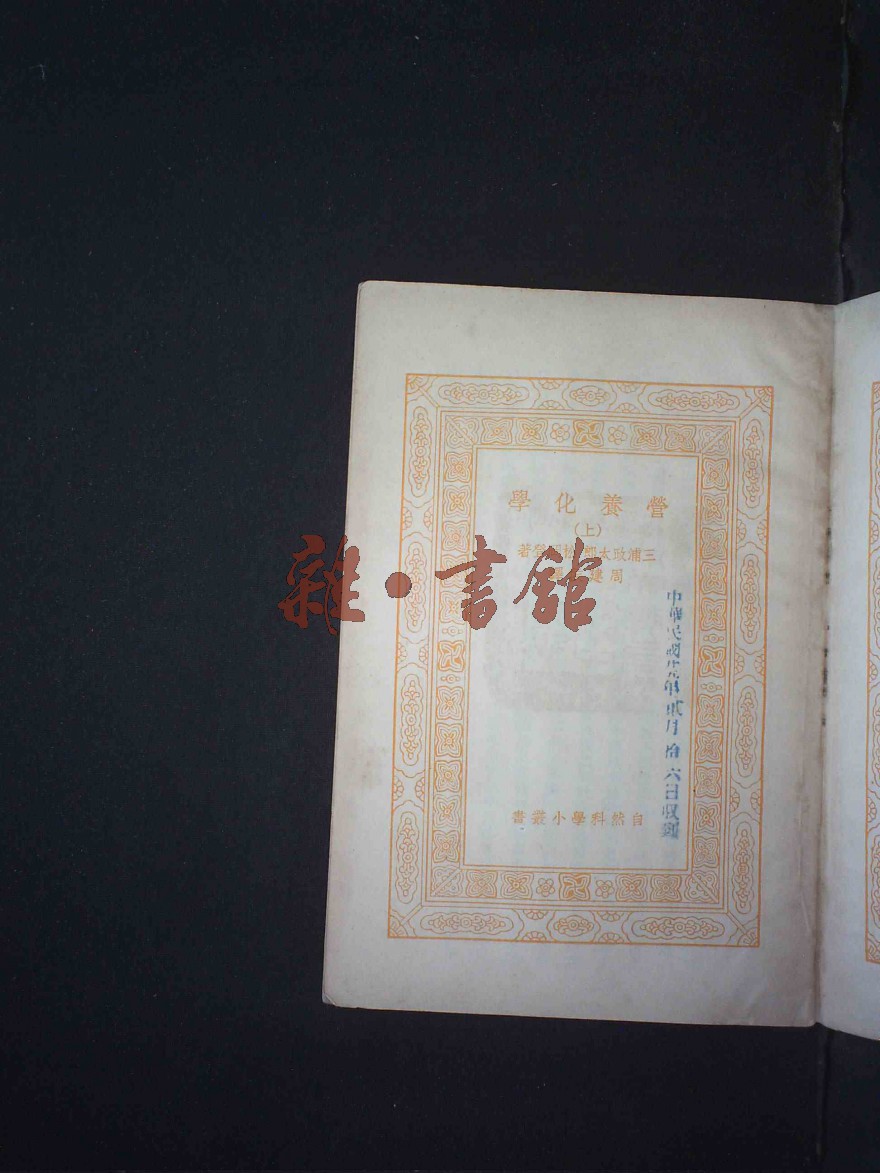 營養化學
(上)
三浦政太郎 松 著
周建
自然科學小叢書
中華民國 年貳月拾六日收到
雜·書館